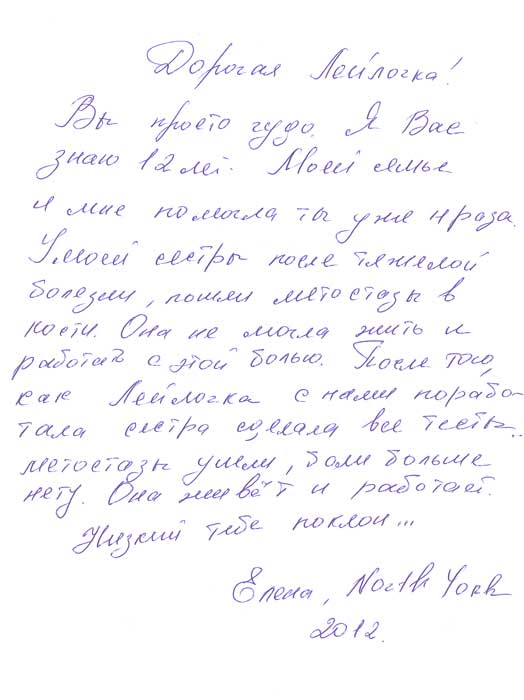 Дорогая Лейлочка!
Вы просто чудо. Я Вас
знаю 12 лет. Моей семье
и мне помогла ты уже 4 раза.
У моей сестры после тяжелой
болезни, пошли метостазы в
кости. Она не могла жить и
работать с этой болью. После того,
как Лейлочка с нами порабо-
тала сестра сделала все тесты..
метостазы ушли, боли больше
нету. Она живёт и работает.
Низкий тебе поклон...
Елена, North York
2012.